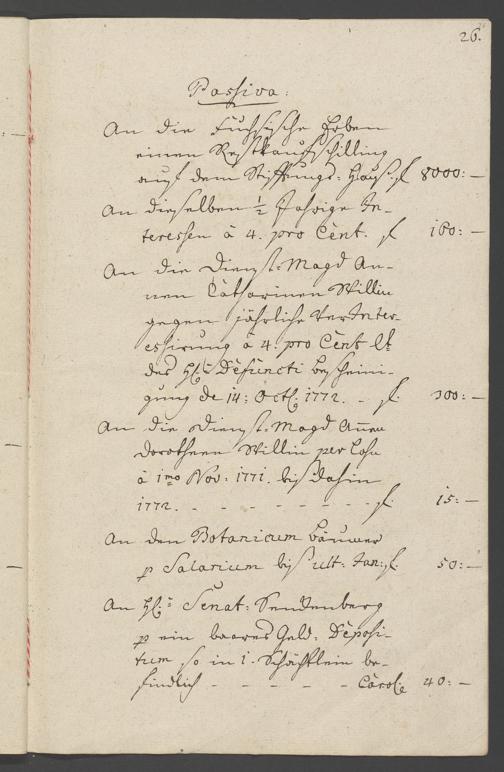 26.
Passiva:
An die Fuchsische Erben
einen Restkaufschilling
auf dem Stifftungs-Hauß. fl. 8000:—
An dieselben ½ Jahrige In-
teressen à 4. pro Cent. fl. 160:—
An die Dienst-Magd An-
nen Catharinen Willin
gegen jährliche Verinter-
essirung à 4: pro Cent lt.
des HE. Defuncti bescheini-
gung de 14: Octl. 1772. - fl. 300:—
An die Dienst-Magd Annen
Dorotheen Willin per Lohn
à 1mo Nov: 1771. biß dahin
1772. - - - - - - - fl. 15:—
An den Botanicum Bäumer
p Salarium biß ult: Jan: fl. 50:—
An HE. Senat: Senckenberg
p ein baares Geld-Deposi-
tum so in 1. Schächtlein be-
findlich - - - - - Carol. 40:—